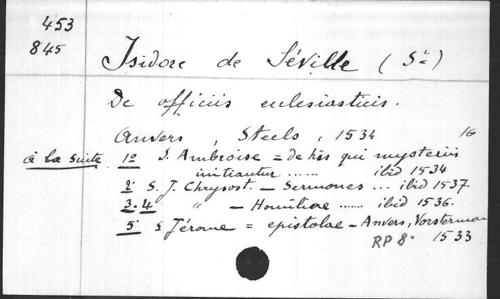 453
845
Isidore de Séville (St)
De officiis eclesiasticis.
Anvers, Steels, 1534 16
à la suite 1º S. Ambroise = de his qui mysteriis
initiantur ...... ibid 1534
2º S. J. Chrysost. — Sermones ... ibid 1537.
3.4 " — Homiliae ...... ibid 1536.
5º S Jérome = epistolae — Anvers, Vorsterman
RP 8º 1533